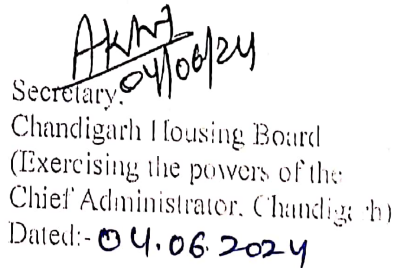 04/06/24
Secretary,
Chandigarh Housing Board
(Exercising the powers of the
Chief Administrator, Chandigarh)
Dated:- 04.06.2024